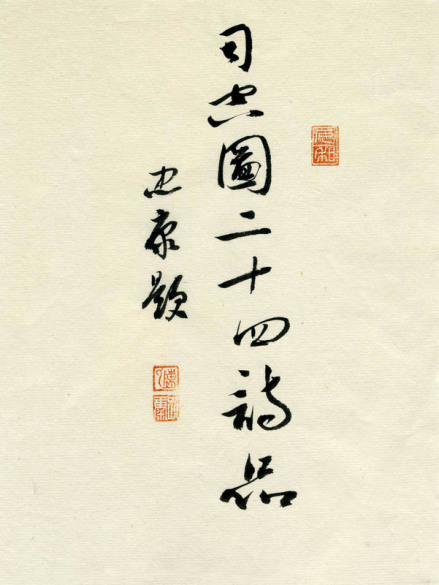 司空圖二十四詩品
忠康題